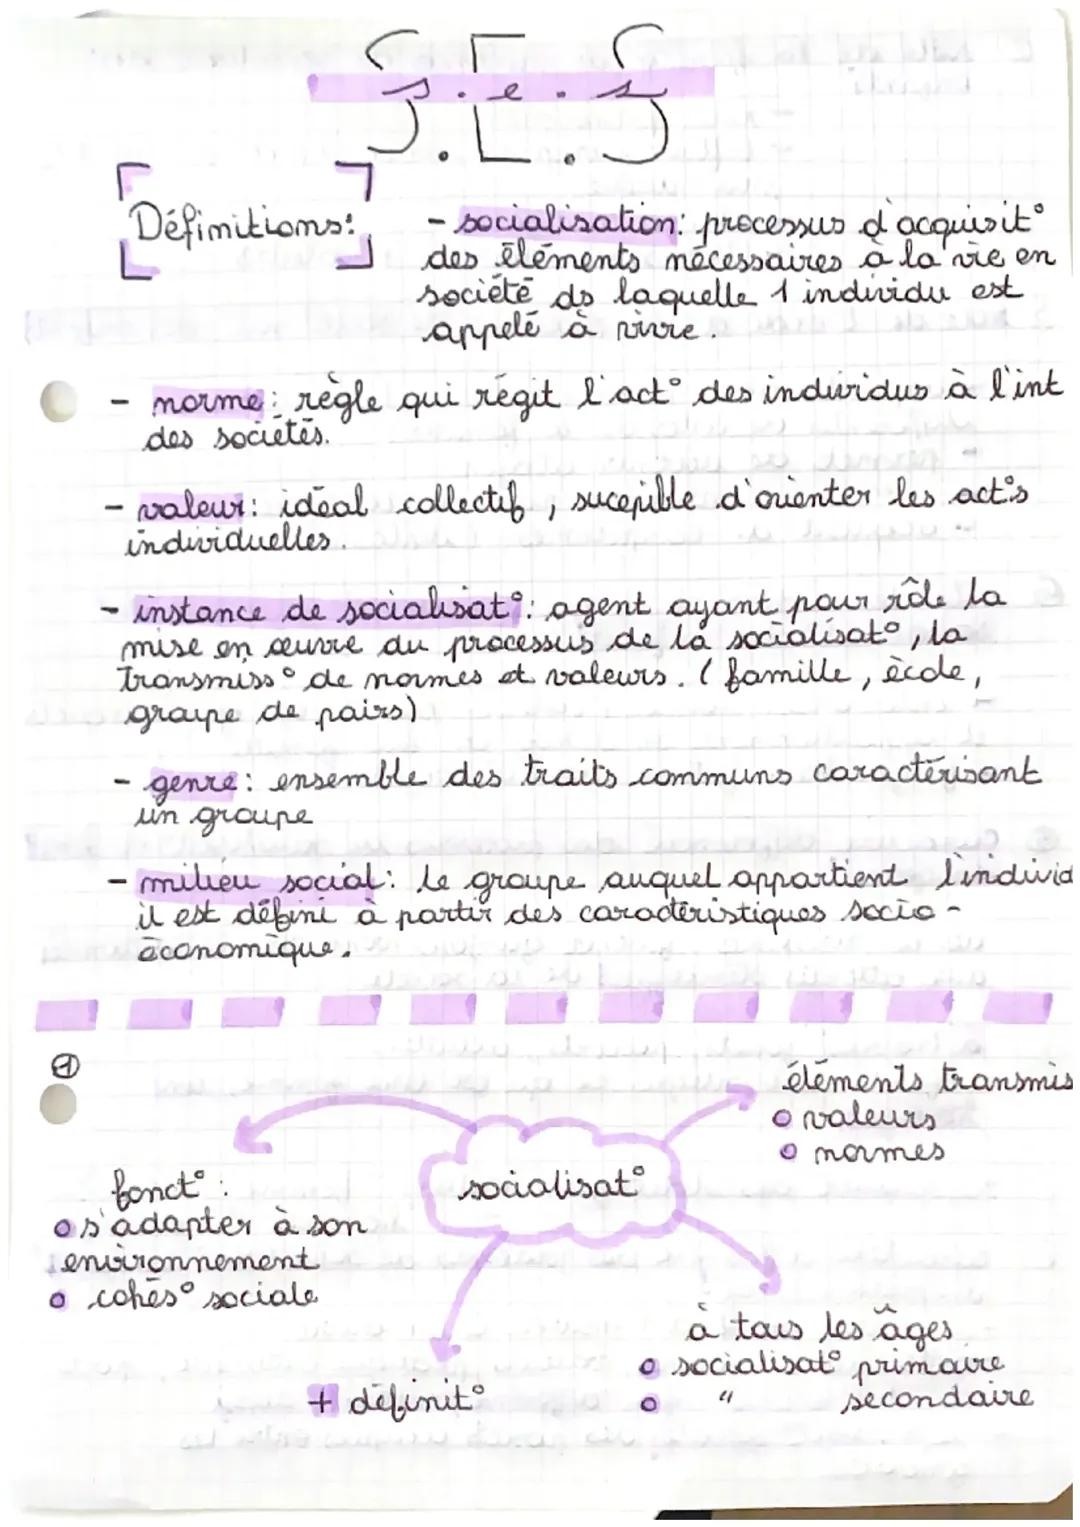 S.E.S
s.e.s
Définitions:
- socialisation: processus d'acquisit°
des éléments nécessaires à la vie en
société ds laquelle 1 individu est
appelé à vivre.
- norme: règle qui régit l'act° des individus à l'int
des sociétés.
- valeur: idéal collectif, suceptible d'orienter les act°s
individuelles.
- instance de socialisat°: agent ayant pour rôle la
mise en œuvre du processus de la socialisat°, la
transmiss° de normes et valeurs. (famille, école,
groupe de pairs)
- genre: ensemble des traits communs caractérisant
un groupe
- milieu social: le groupe auquel appartient l'individ
il est défini à partir des caractéristiques socio-
économique.
①
éléments transmis
o valeurs
o normes
socialisat°
fonct° :
o s'adapter à son
environnement
o cohés° sociale
à tous les âges
o socialisat° primaire
o " secondaire
+ définit°